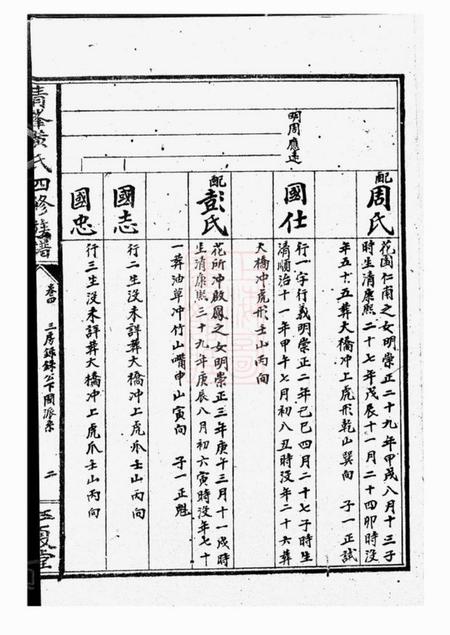 明周應遠
配
周氏
花園仁甫之女明崇正二十九年甲戌八月十三子
時生清康熙二十七年戊辰十一月二十四卯時沒
年五十五葬大橋冲上虎形乾山巽向 子一正試
國仕
行一字行義明崇正二年己巳四月二十七子時生
清順治十一年甲午七月初八丑時沒年二十六葬
大橋冲虎形壬山丙向
配
彭氏
花所冲啟鳳之女明崇正三年庚午三月十一戌時
生清康熙三十九年庚辰八月初六寅時沒年七十
一葬油草冲竹山嘴申山寅向 子一正魁
國志
行二生沒未詳葬大橋冲上虎爪壬山丙向
國忠
行三生沒未詳葬大橋冲上虎爪壬山丙向
青峰黃氏四修族譜
卷四
三房
公下開派系
二